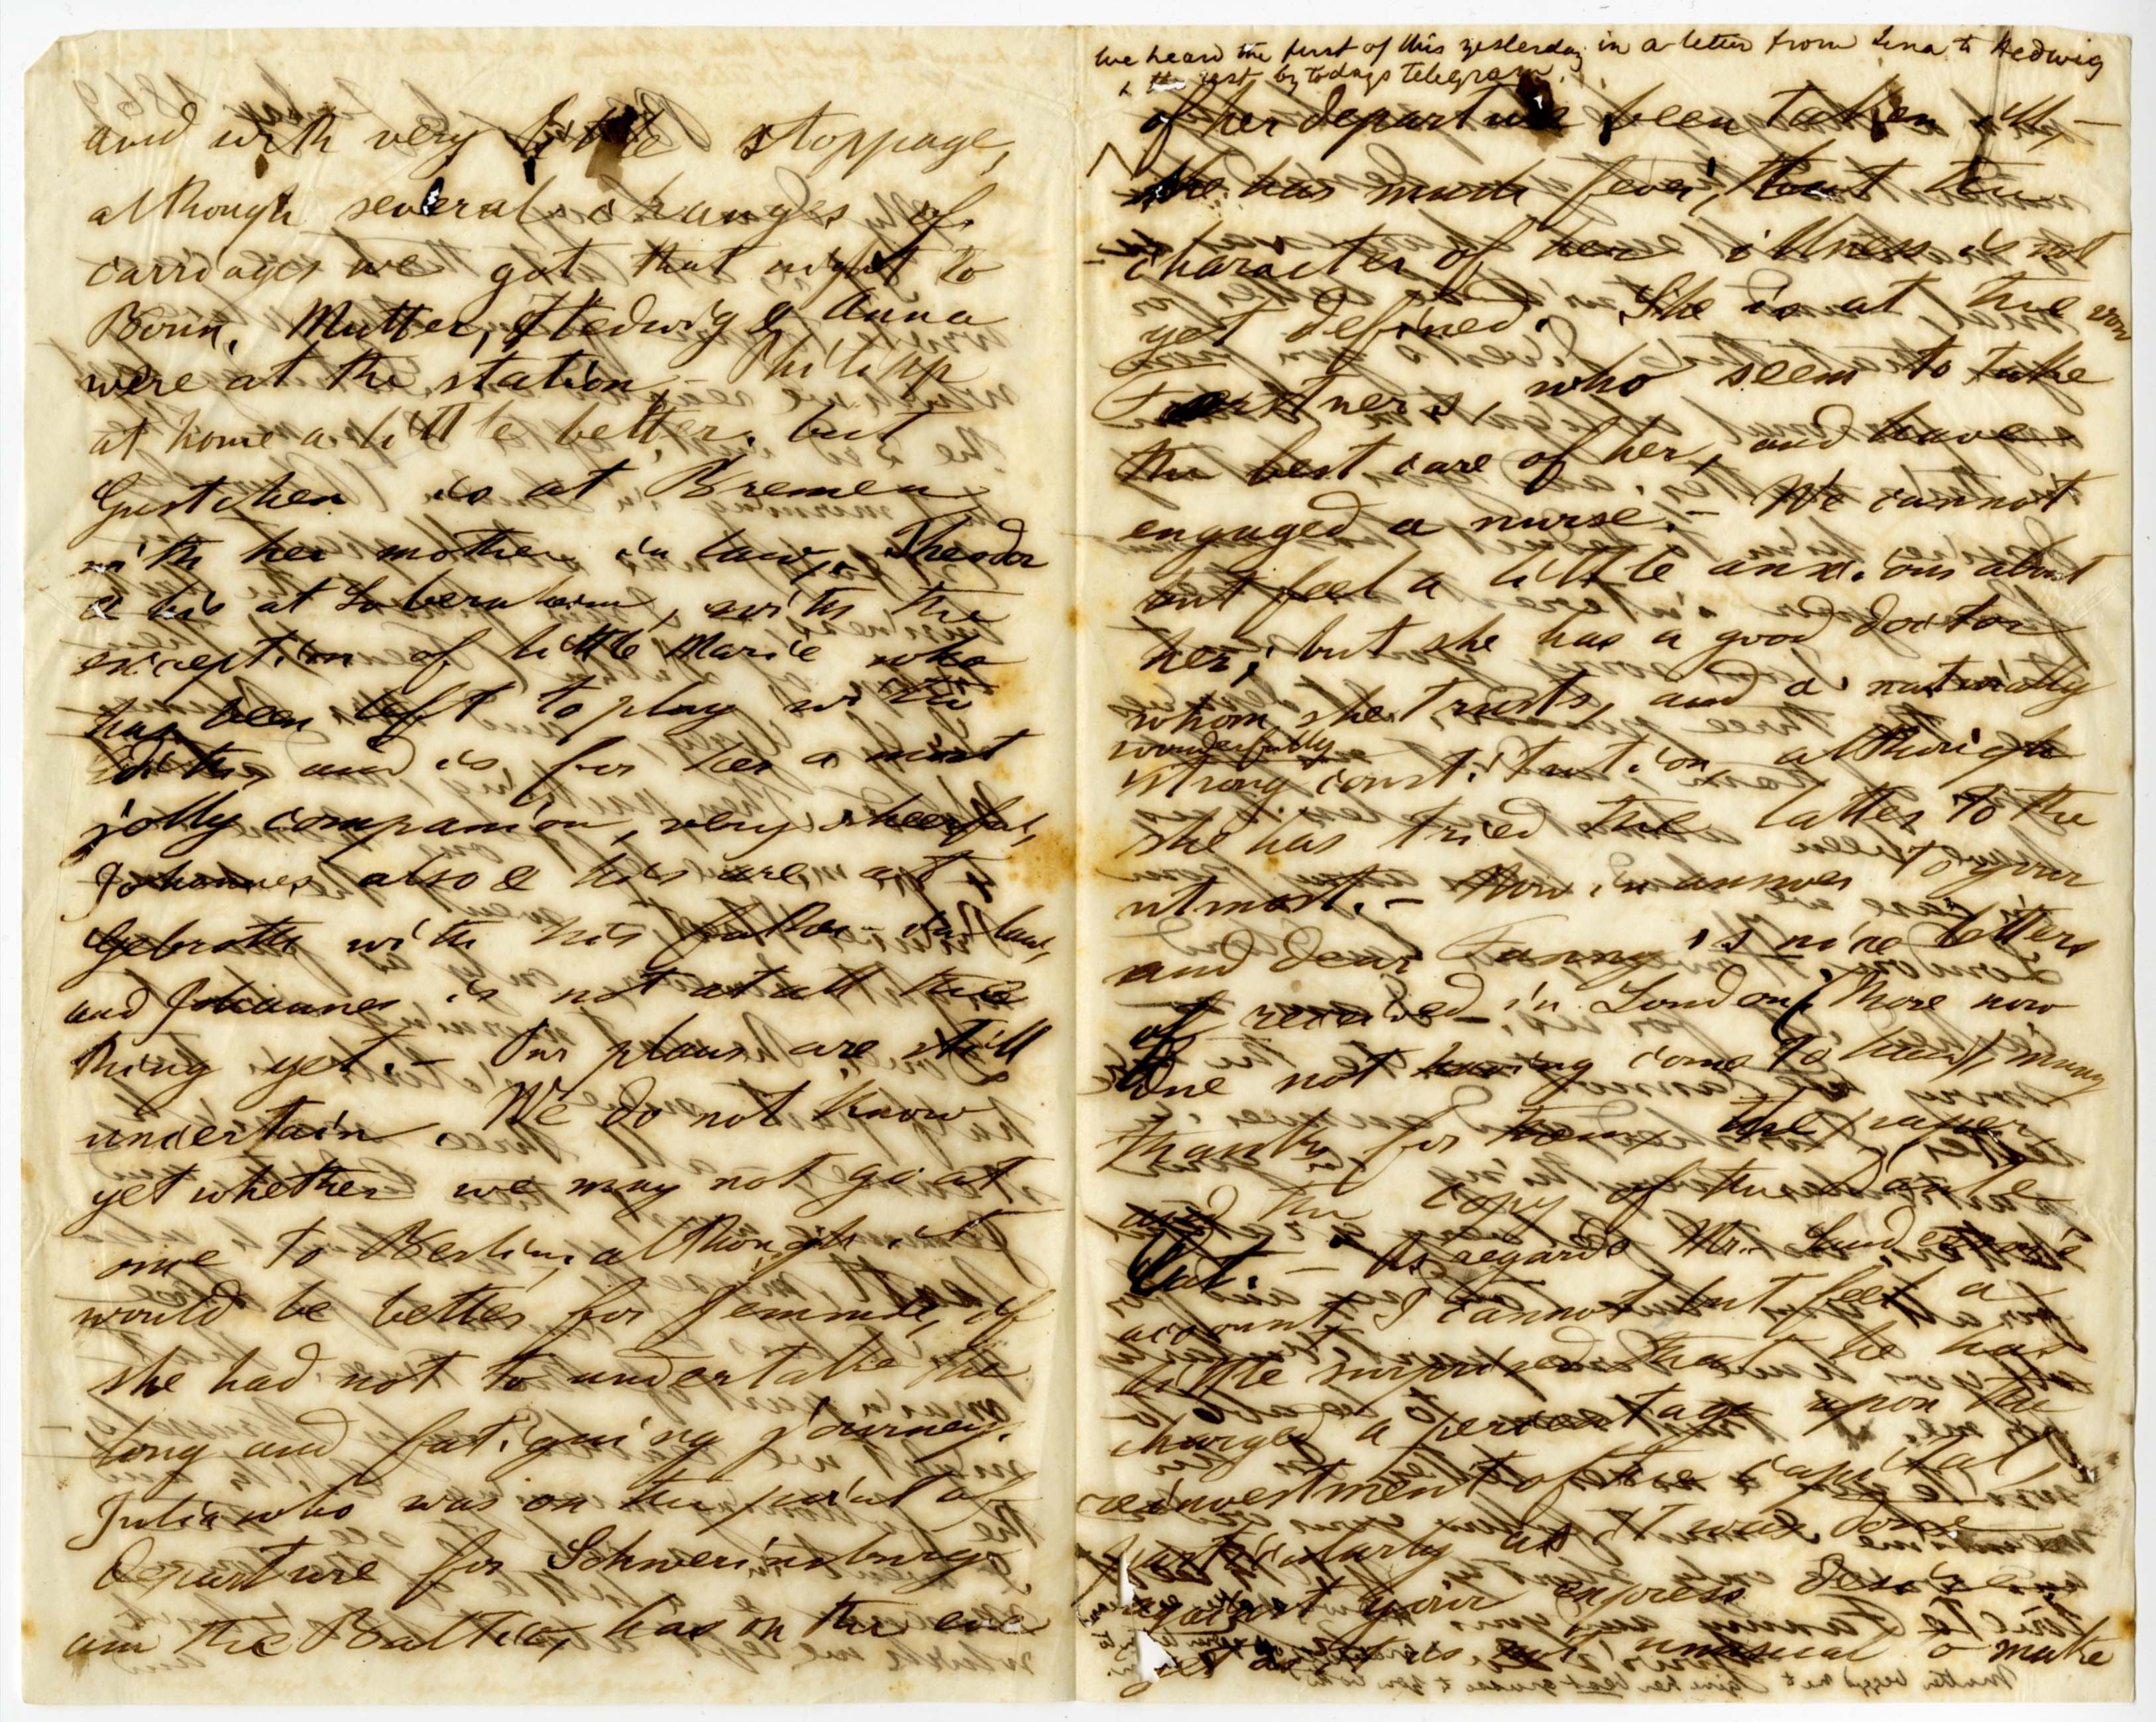 and with very little stoppage,
although several changes of
carriages we got that night to
Bonn. Mutter, Hedwig & Anna
were at the station, – Philipp
at home a little better, but
Gustchen is at Bremen
with her mother in law, Theodor
& his at Sobernheim, with the
exception of little Marie who
has been left to play with
and is for her a most
jolly companion, very cheerful,
Johannes also & his are at
with his father-in-law,
and Johannes is not at all the
thing yet. – Our plans are still
uncertain. We do not know
yet whether we may not go at
once to Berlin, although it
would be better for Jemmile, if
she had not to undertake the
long and fatiguing journey.
Julia who was on the point of
departure for Schwerinsburg
am the Baltic, has on the eve
We heard the first of this yesterday in a letter from Lina to Hedwig
& the rest by todays telegram.
of her departure been taken ill, –
she has much fever, but the
character of her illness is not
yet defined. She is at the von
Foerstners, who seem to take
the best care of her, and have
engaged a nurse. – We cannot
but feel a little anxious about
her; but she has a good doctor
whom she trusts, and a naturally
wonderfully
strong constitution, although
she has tried the latter to the
utmost. – Now in answer to your
and dear Fanny's nice letters
of received in London, those now
one not having come to hand, many
thanks for them the paper,
and the copy of the
– As regards Mr.
account, I cannot but feel a
little surprised that he has
charged a percentage upon the
reinvestment of the capital,
particularly as it was done
against your express desire
yet as it is not unusual to make